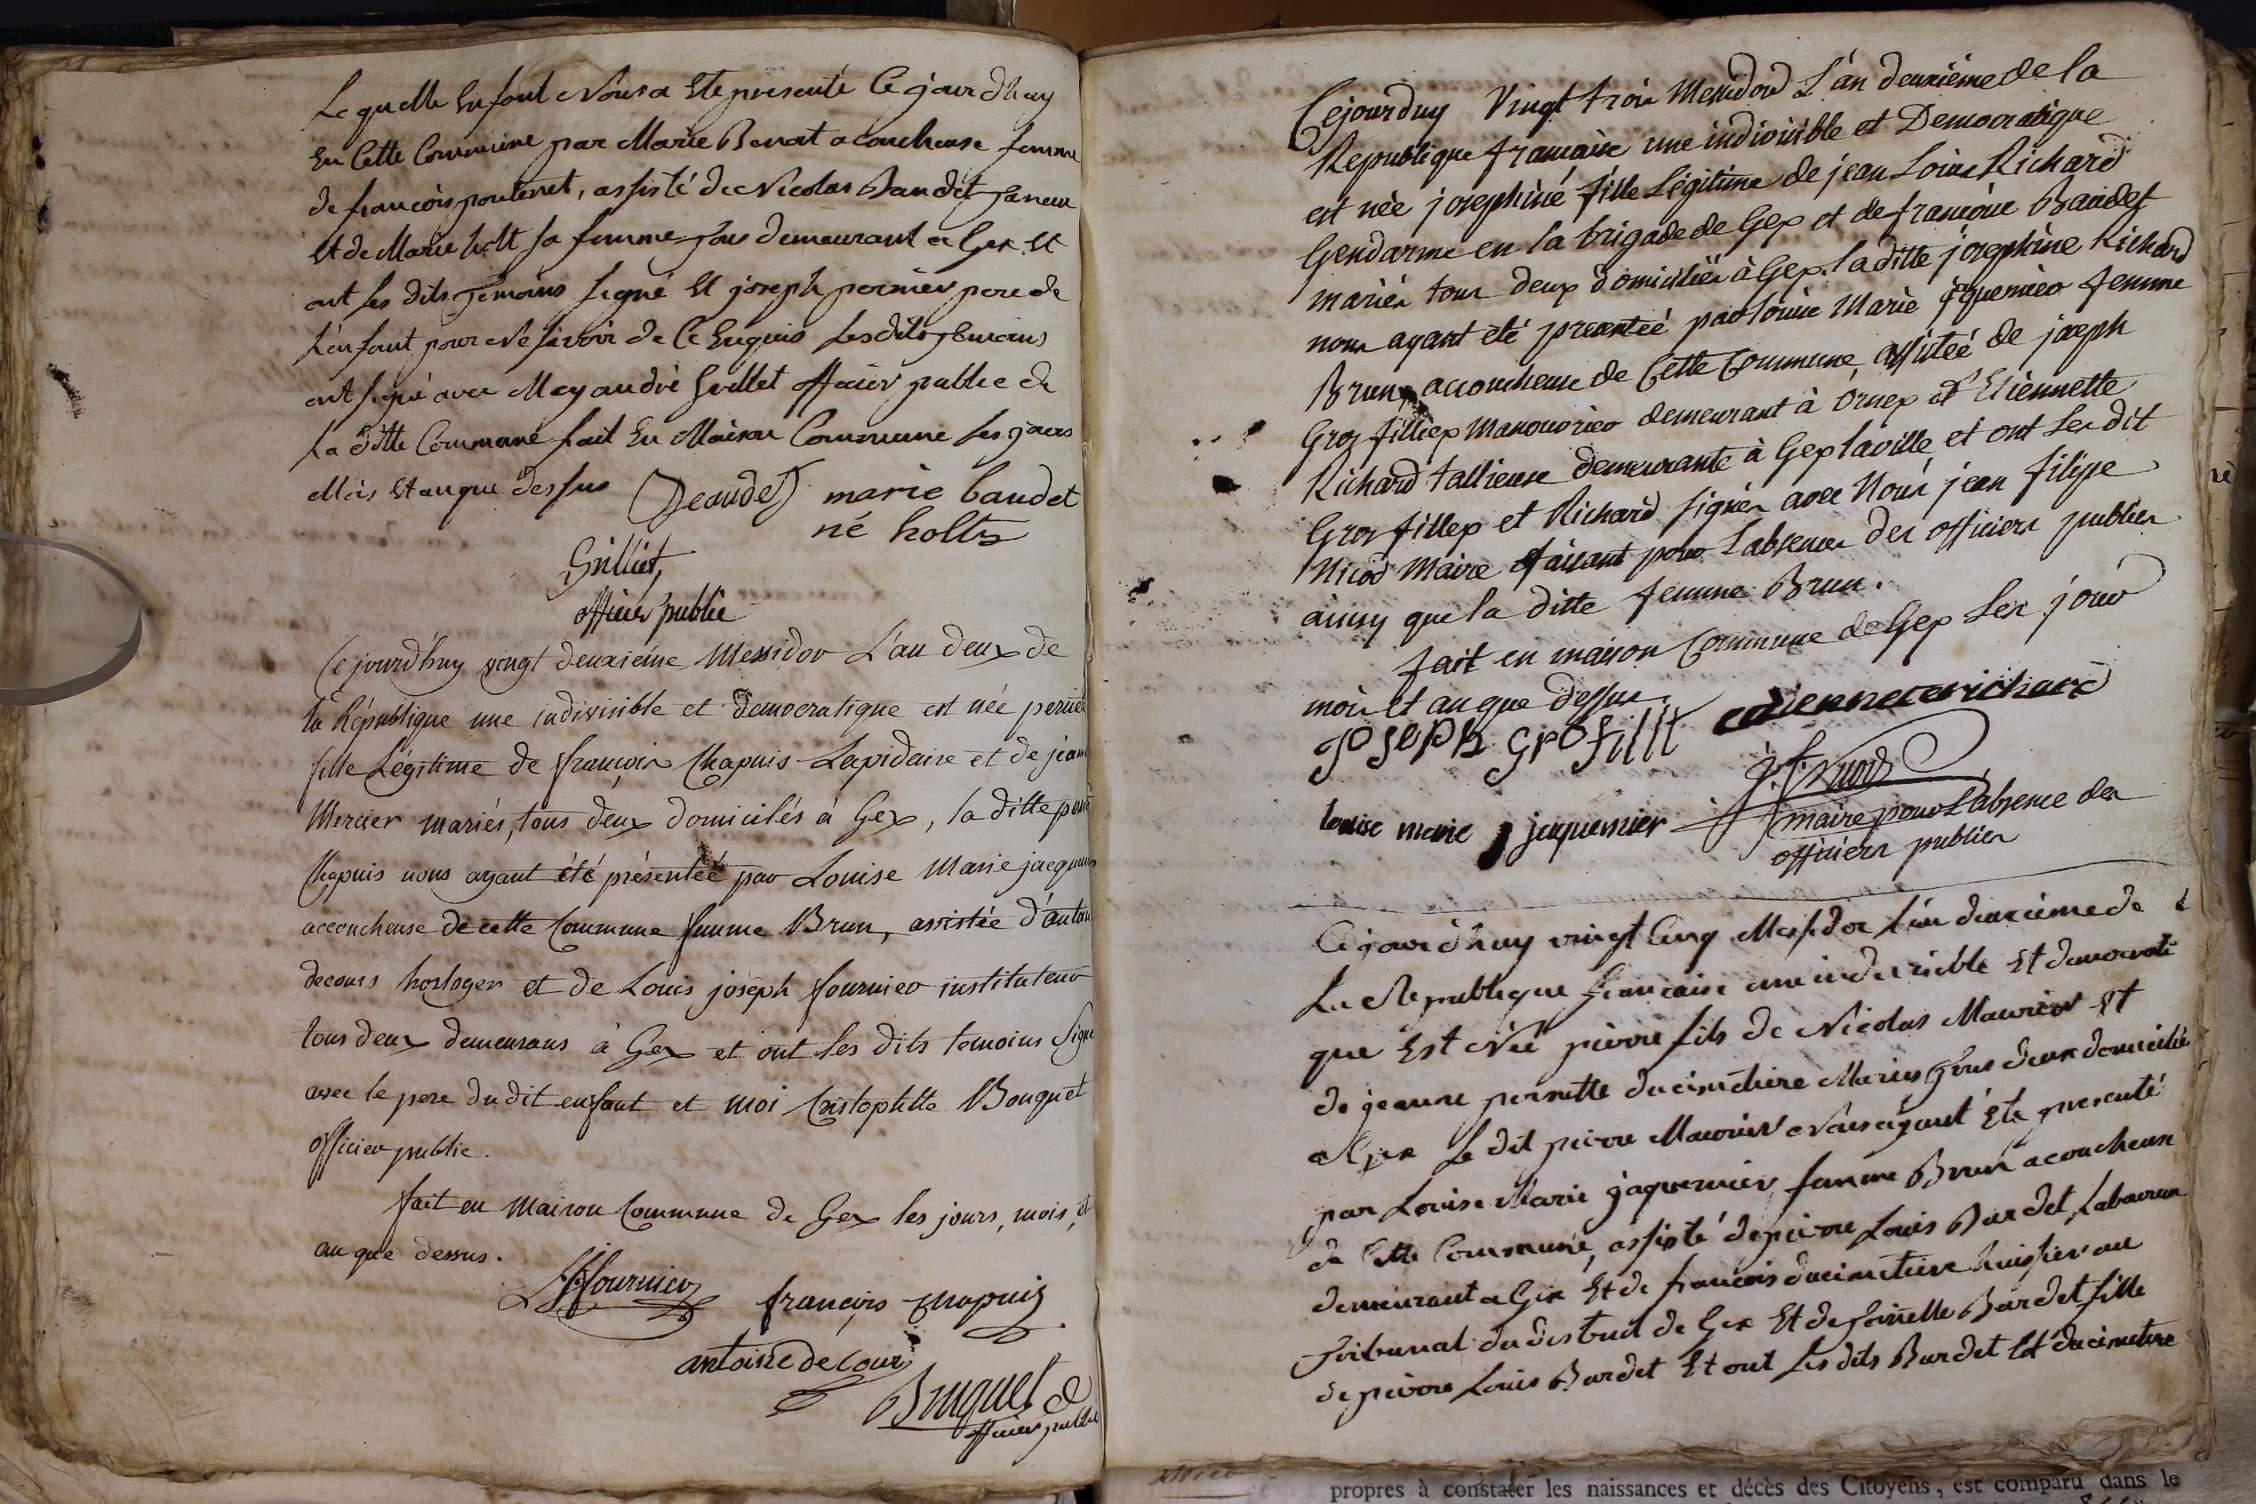 Lequelle Enfant Nous a Ete presenté Ce jourdhuy
En Cette Commune par Marie Benoit acoucheuse femme
de françois pontenet, assisté de Nicolas Baudet
Et de Marie holt sa femme Tous demeurant a Gex Et
ont les dits Temoins signé Et joseph pernier pere de
L'enfant pour ne savoir de Ce Enquis Lesdits Temoins
ont signé avec Moy andré Grillet officier public de
La ditte Commune fait En Maison Commune les jours
Mois Et an que dessus Beaudet marie baudet
né holts
Grilliet
officier public
Cejourd'huy vingt deuxième Messidor L'an deux de
la République une indivisible et démocratique est née pernete
fille Légitime de françois Chapuis Lapidaire et de jeane
Mercier mariés, tous deux domiciliés à Gex, la ditte pernete
Chapuis nous ayant été présentée par Louise Marie jacquemier
accoucheuse de cette Commune femme Brun, assistée d'antoine
decours horloger et de Louis joseph fournier instituteur
tous deux demeurans à Gex et ont les dits temoins signé
avec le pere dudit enfant et moi Cristophle Bouquet
officier public.
fait en maison Commune de Gex les jours, mois, et
an que dessus.
LJ fournier françois Chapuis
antoine de Cour
Buquet
officier public
Cejourduy Vingt trois Messidor L'an deuxième de la
Republique francaise une indivisible et Democratique
est née josephine fille Légitime de jean Louis Richard
Gendarme en la brigade de Gex et de francoise Baudet
mariés tous deux domiciliés à Gex. la ditte josephine Richard
nous ayant été presentéé par louise Marie jquemier femme
Brun, accoucheuse de Cette Commune, assistéé de joseph
Gros filliex Manouvrier demeurant à Ornex et Etiennette
Richard tallieuse demeurante à Gex la ville et ont Les dit
Gros fillex et Richard signés avec Nous jean filipe
Nicod Maire faisant pour Labsence des officiers publics
ainsy que la ditte femme Brun.
fait en maison Commune de Gex Les jour
mois et an que dessus.
JoSePh GroFillt etiennete richard
J. f. Nicod
louise marie jaquemier maire pour Labsence des
officiers publics
Cejourdhuy vingt Cinq Messidor L'an deuxieme de
La Republique francaise une indivisible Et democrati
que Est Né pierre fils de Nicolas Maurier Et
de jeanne pernette ducimetiere Mariés Tous deux domiciliés
a Gex Le dit pierre Maurier Nous ayant Eté presenté
par Louise Marie jaquemier femme Brun acoucheuse
de Cette Commune, assisté de pierre Louis Burdet, Laboureur
demeurant a Gex Et de françois ducimetiere huissier au
Tribunal du district de Gex Et de Burdet fille
de pierre Louis Burdet Et ont les dits Burdet Et ducimetiere
propres à constater les naissances et décès des Citoyens, est comparu dans le